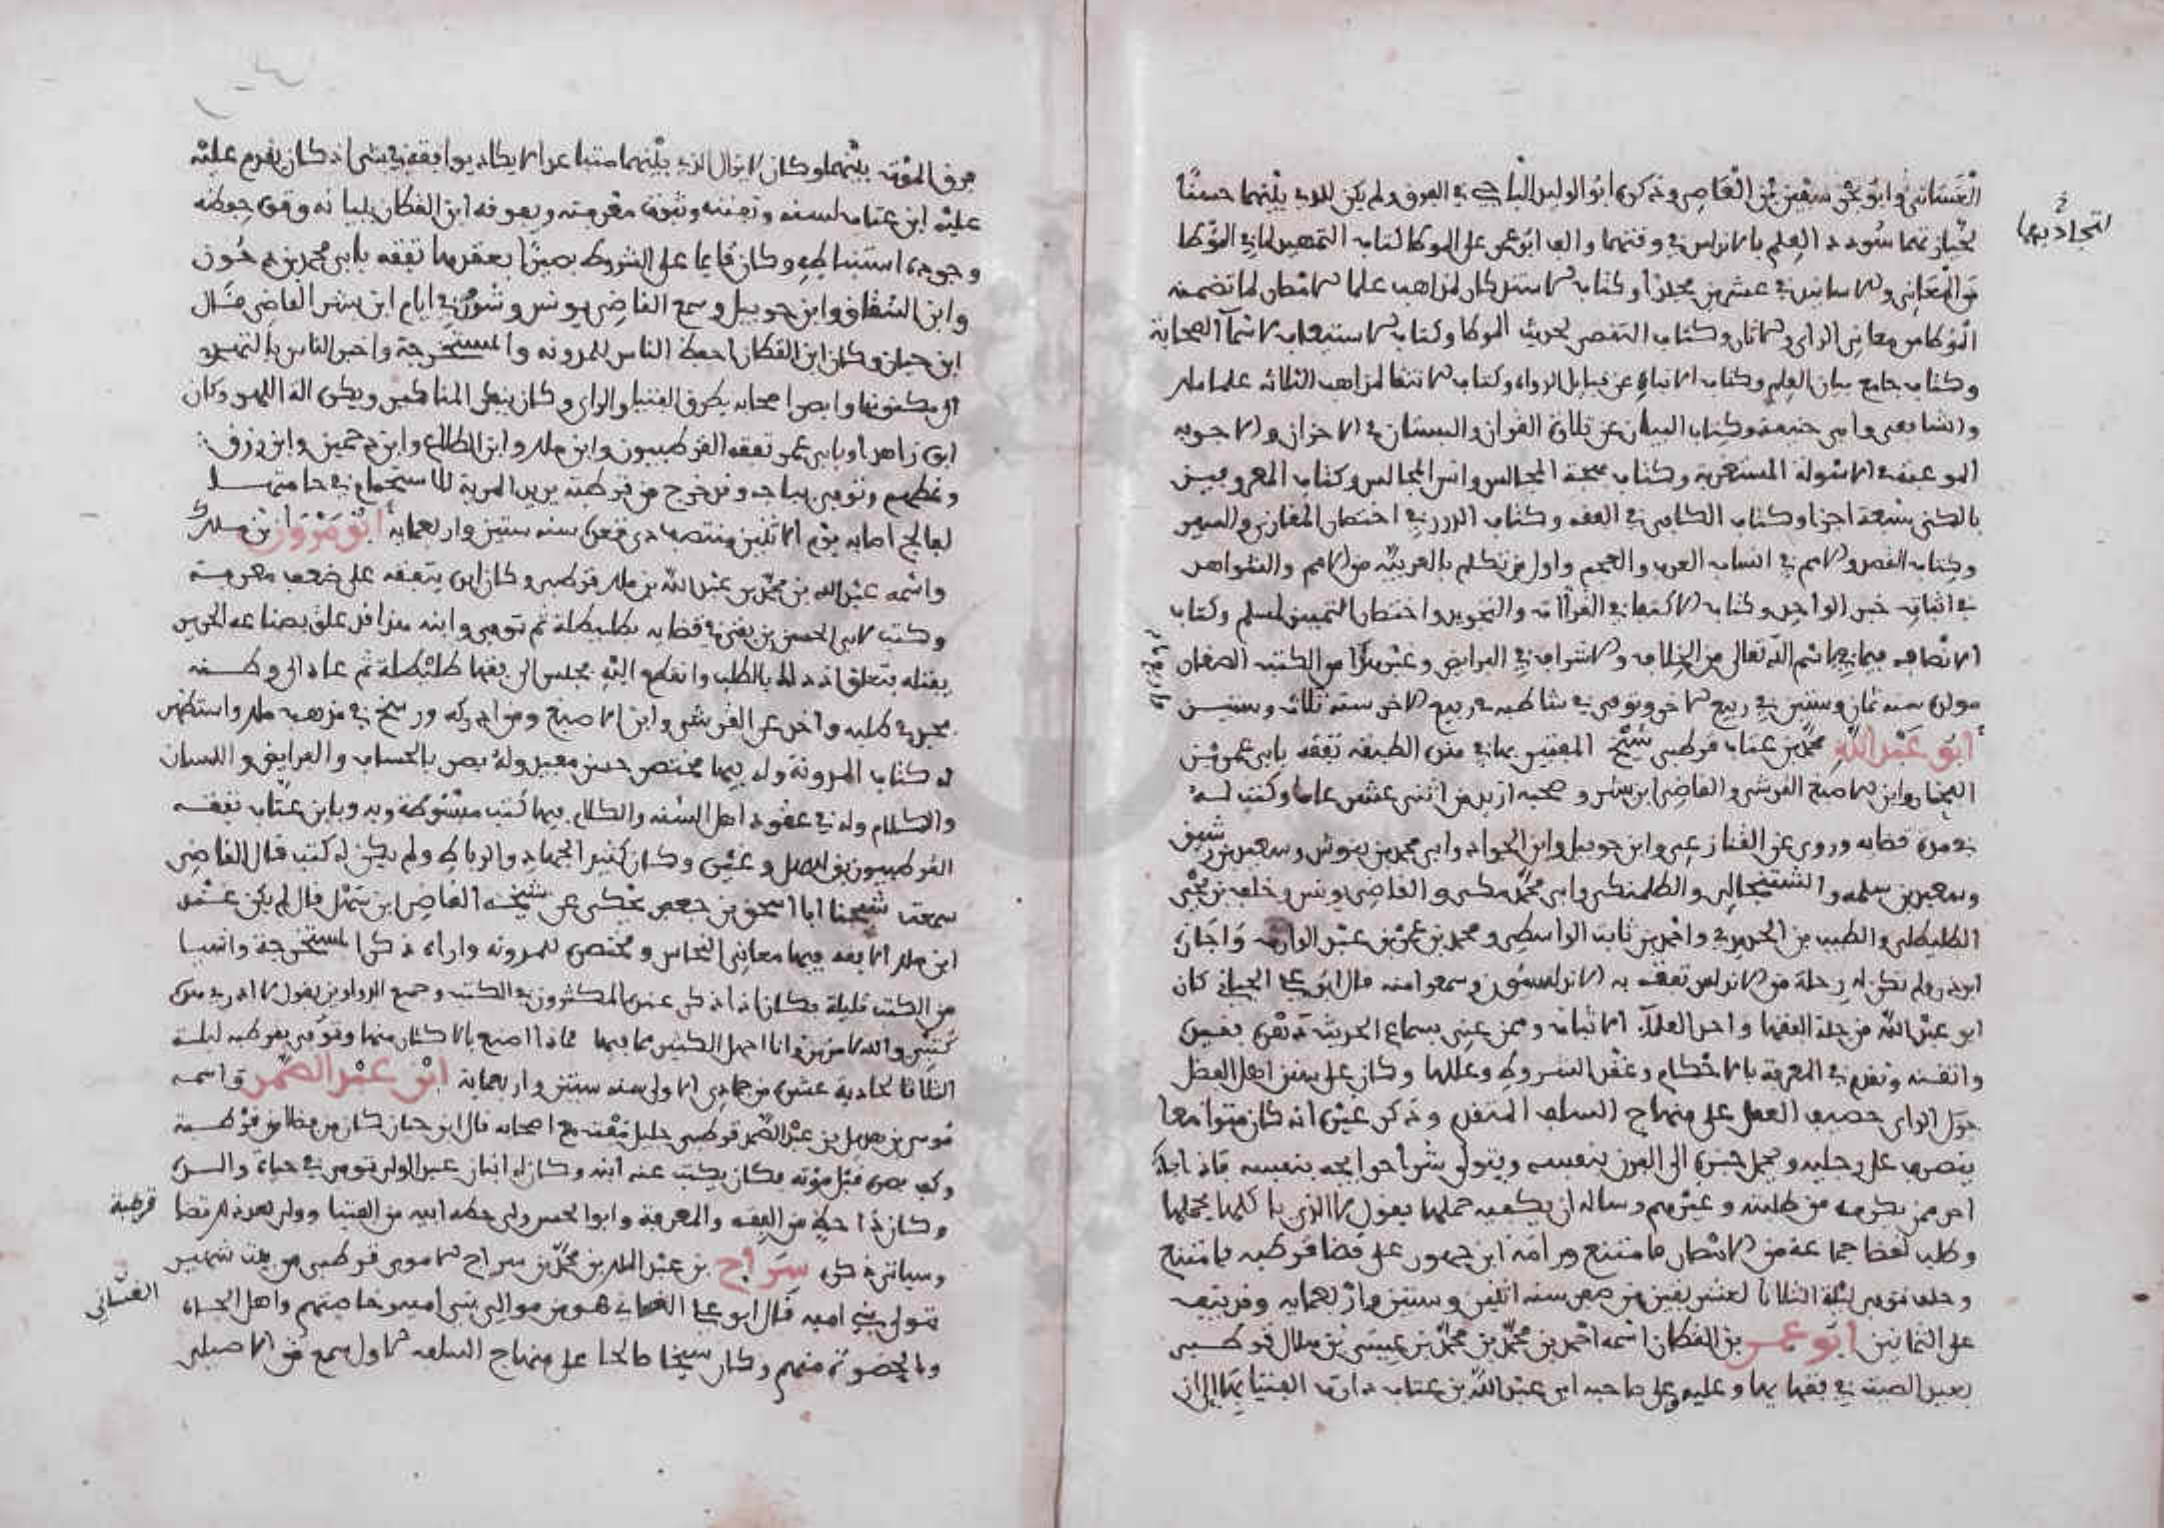 الغساني وأبو بحر سفين بن العاصي وذكره أبو الوليد الباجي في الفرق ولم يكن للذي بينهما حسنا
لتجاذبهما سودد العلم بالاندلس في وقتهما وألف أبو عمر على الموطا كتاب التمهيد لما في الموطا
من المعاني والاسانيد في عشرين مجلدا وكتاب الاستذكار لمذاهب علما الامصار لما تضمنه
الموطا من معاني الراي والاثار وكتاب التقصي لحديث الموطا وكتاب الاستيعاب لاسما الصحابة
وكتاب جامع بيان العلم وكتاب الانباه عن قبايل الرواه وكتاب الانتقا لمذاهب الثلاثه علما ملك
والشافعي وابي حنيفة وكتاب البيان عن تلاوة القران والبستان في الاخدان والاجوبه
الموعبة في الاسولة المستغربة وكتاب بهجة المجالس وانس المجالس وكتاب المعروفين
بالكنى سبعة اجزا وكتاب الكافي في الفقه وكتاب الدرر في اختصار المغازي والسير
وكتاب القصد والامم في انساب العرب والعجم واول من تكلم بالعربية من الامم والشواهد
في اثبات خبر الواحد وكتاب الاكتفا في القراات والتجويد واختصار التمييز لمسلم وكتاب
الانصاف فيما في اسم الله تعالى من الخلاف والاشراف في الفرايض وغير هذا من الكتب الصغار
مولده سنه ثمان وستين في ربيع الاخر وتوفي في شاطبه في ربيع الاخر سنة ثلاث وستين
أبو عبد الله محمد بن عتاب قرطبي شيخ المفتين بها في هذه الطبقه تفقه بابي عمر بن
الفخار وابن الاصبغ القرشي والقاضي ابن بشر وصحبه ازيد من اثني عشر عاما وكتب له
في مدة قضايه وروى عن القنازعي وابن حوبيل وابن الحذاء وابي محمد بن بنوش وسعيد بن رشيق
وسعيد بن سلمه والشنتجالي والطلمنكي وابي محمد مكي والقاضي يونس وخلف بن يحيى
الطليطلي والطيب بن الحديدي واحمد بن ثابت الواسطي ومحمد بن عمر بن عبد الوارث وأجازه
ابوذر ولم تكن له رحلة من الاندلس تفقه به الاندلسيون وسمعوا منه قال ابو علي الجياني كان
ابو عبد الله من جلة الفقها واحد العلما الاثبات وممن عني بسماع الحديث دهره فقيده
واتقنه وتقدم في المعرفة بالاحكام وعقد الشروط وعللها وكان على سنن اهل الفضل
جزل الراي حصيف العقل على منهاج السلف المتقدم وذكر غيره انه كان متواضعا
يتصرف على رجليه ويحمل خبزه الى الفرن بنفسه ويتولى شرا حوايجه بنفسه فاذا لقيه
احد ممن يكرمه من طلبته وغيرهم وساله ان يكفيه حملها يقول لا الذي ياكلها يحملها
وطلب لقضا جماعة من الامصار فامتنع ورامه ابن جهور على قضا قرطبه فامتنع
وحلف توفي ليلة الثلاثا لعشر بقين من صفر سنه اثنين وستين واربعمايه وقد نيف
على الثمانين أبو عمر بن القطان اسمه احمد بن محمد بن محمد بن عيسى بن هلال قرطبي
بعيد الصيت في فقهايها وعليه وعلى صاحبه ابن عبد الله بن عتاب دارت الفتيا بها الى ان
لتجاذبهما
فرق الموت بينهما وكان لا يزال الذي بينهما متباعدا لا يكاد يوافقه في شي اذ كان يقدم عليه
عليه ابن عتاب لسنه وتفننه وثبوت معرفته ويفوقه ابن القطان ببيانه وقوة حفظه
وجودة استنباطه وكان قايما على الشروط بصيرا بعقدها تفقه بابي محمد بن دحون
وابن الشقاق وابن حوبيل وسمع القاضي يونس وشوور في ايام ابن بشر القاضي قال
ابن حيان وكان ابن القطان احفظ الناس للمدونه والمستخرجة واخبر الناس بالتهدي
الى مكنونها وابصر اصحابه بطرق الفتيا والراي وكان ينكر المناكير ويكسر الة اللهو وكان
ابوه زاهدا وبابي عمر تفقه القرطبيون وابن ملك وابن الطلاع وابن حمدين وابن رزق
وغطهم وتوفي بباجه وقد خرج من قرطبة يريد المرية للاستحمام في حامتها
لفالج اصابه يوم الاثنين منتصف ذي قعدة سنه ستين واربعمايه أبو مروان بن ملك
واسمه عبيد الله بن محمد بن عبد الله بن ملك قرطبي وكان ابوه يتفقه على ضعف معرفة
وكتب لابي الحسن بن بقي في قضايه بطليطلة ثم توفي وابنه هذا قد علق بصناعه الحرير
بفتله يتعلق اذ ذاك بالطلب وانقطع اليه بمجلس الى بفقها طليطلة ثم عاد الى وطنه
فجد في طلبه واخذ عن القرشي وابن الاصبغ ومن ادركه ورسخ في مذهب ملك واستظهر
له كتاب المدونة وله فيها مختصر حسن مفيد وله بصر بالحساب والفرايض واللسان
والكلام وله في عقود اهل السنه والكلام فيها كتب مبسوطة وبه وبابن عتاب تفقه
القرطبيون وغيره وكان كثير الجهاد والرباط ولم يكن له كتب قال القاضي
سمعت شيخنا ابا اسحق بن جعفر يحكي عن شيخه القاضي ابن سهل قال لم يكن عند
ابن ملك الا بقه فيها معاني النحاس ومختصره للمدونه واراه ذكر المستخرجة واشيا
من الكتب قليلة فكان اذا ذكر عنده المكثرون في الكتب وجمع الدواوين يقول لا ادري هذه
كتبي والله لاموتن وانا اجهل الكثير مما فيها فماذا اصنع بالاكثار منها وتوفي بقرطبه ليلة
الثلاثا لحادية عشرة من جمادى الاولى سنه ستين واربعماية أبو عبد الصمد واسمه
موسى بن هذيل بن عبد الصمد قرطبي جليل مفت مع اصحابه قال ابن حيان كان من مفاخر قرطبة
وكف بصره قبل موته فكان يكتب عنه ابنه وكان له ابنان عبد الولي توفي في حياة والده
وكان ذا حظ من الفقه والمعرفة وابوا الحسن ولي خطه ابيه من الفتيا وولي بعد ذلك قضا
وسياتي ذكره سراج بن عبد الله بن محمد بن سراج الاموي قرطبي من بيت شهير
بتولي بني امية قال ابو علي الغساني هو من موالي بني اميه وخاصتهم واهل الجاه
والحضوة منهم وكان شيخا صالحا على منهاج السلف الاول سمع من الاصيلي
قرطبة
الغساني